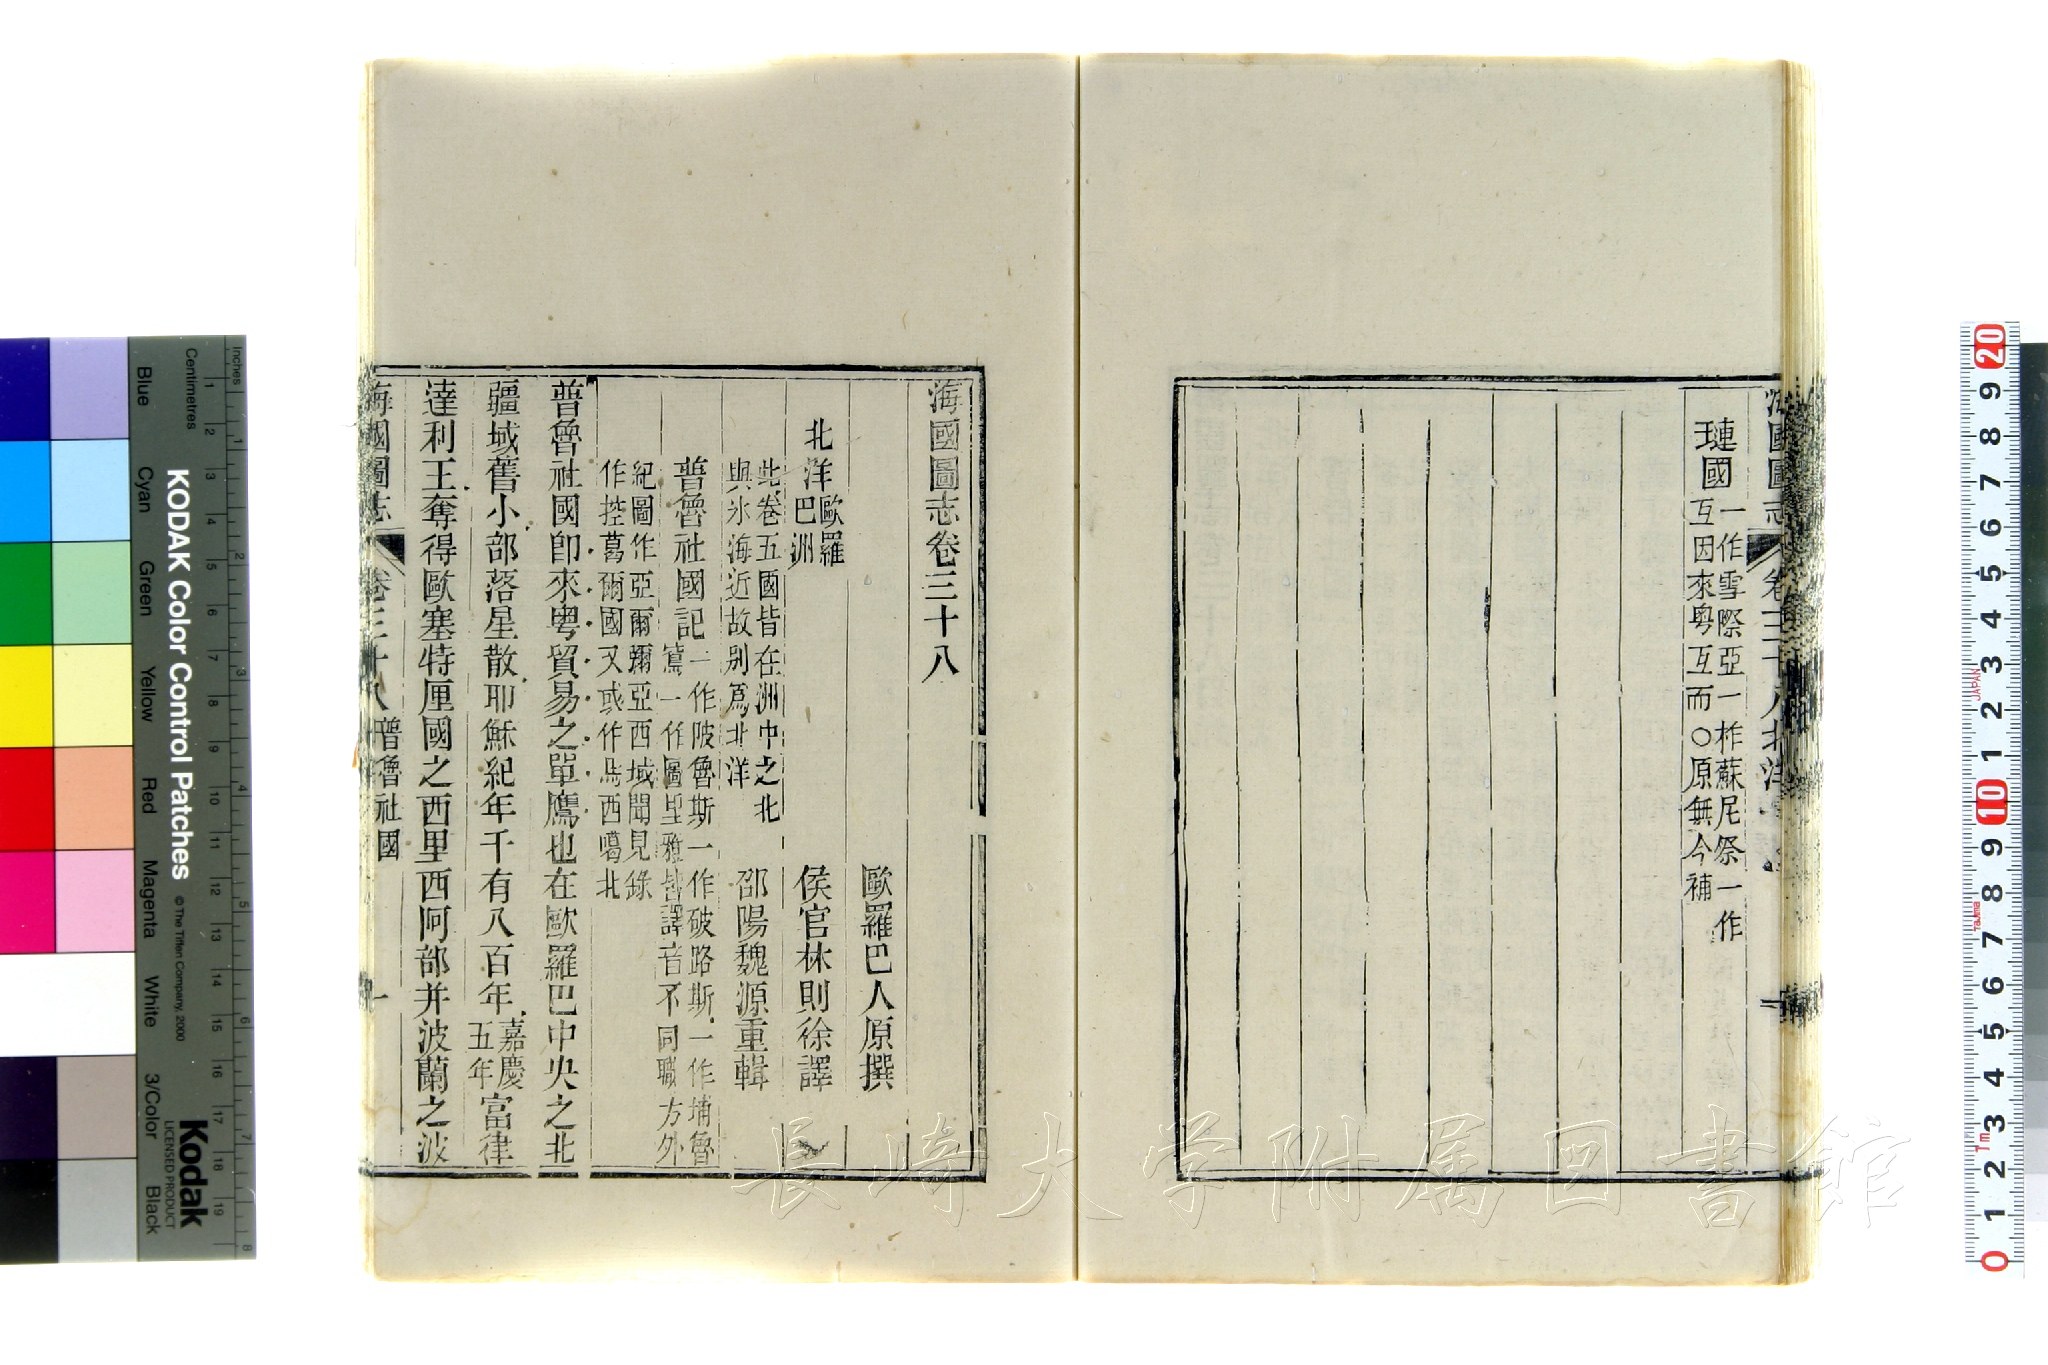 海國圖志 卷三十八 北洋
璉國 一作雪際亞一柞蘇尼祭一作
互因來粤互而○原無今補
海國圖志卷三十八
歐羅巴人原撰
侯官林則徐譯
邵陽魏源重輯
北洋 歐羅
巴洲
此卷五國皆在洲中之北
與氷海近故别爲北洋
普魯社國記 一作陂魯斯一作破路斯一作埔魯
寫一作圖里雅皆譯音不同職方外
紀圖作亞爾彌亞西域聞見錄
作控葛爾國又或作馬西噶北
普魯社國卽來粤貿易之單鷹也在歐羅巴中央之北
疆域舊小部落星散耶穌紀年千有八百年 嘉慶
五年 富律
達利王奪得歐塞特厘國之西里西阿部并波蘭之波
海國圖志 卷三十八 普魯社國 一
長崎大学附属図書館
Inches
Centimetres
1 2 3 4 5 6 7 8 9 10 11 12 13 14 15 16 17 18 19
1 2 3 4 5 6 7 8
Blue Cyan Green Yellow Red Magenta White 3/Color Black
KODAK Color Control Patches
© The Tiffen Company, 2000
Kodak
LICENSED PRODUCT
20 9 8 7 6 5 4 3 2 1 10 9 8 7 6 5 4 3 2 1 0
JAPAN